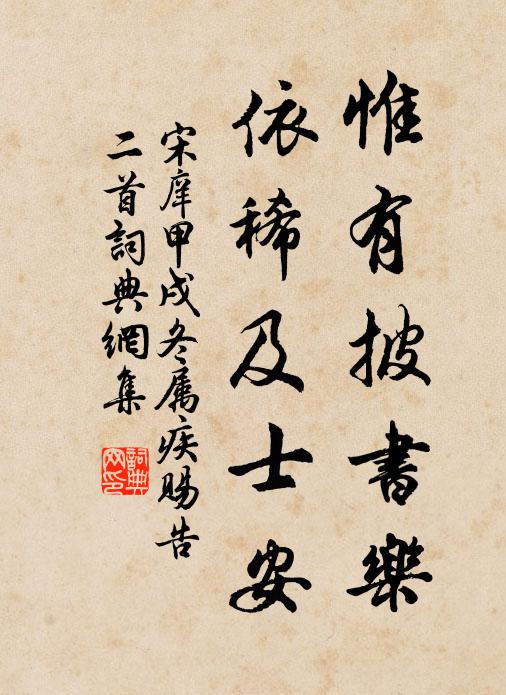 惟有披書樂
依稀及士安
宋庠甲戌冬属疾賜告
二首詞典網集
詞典網印